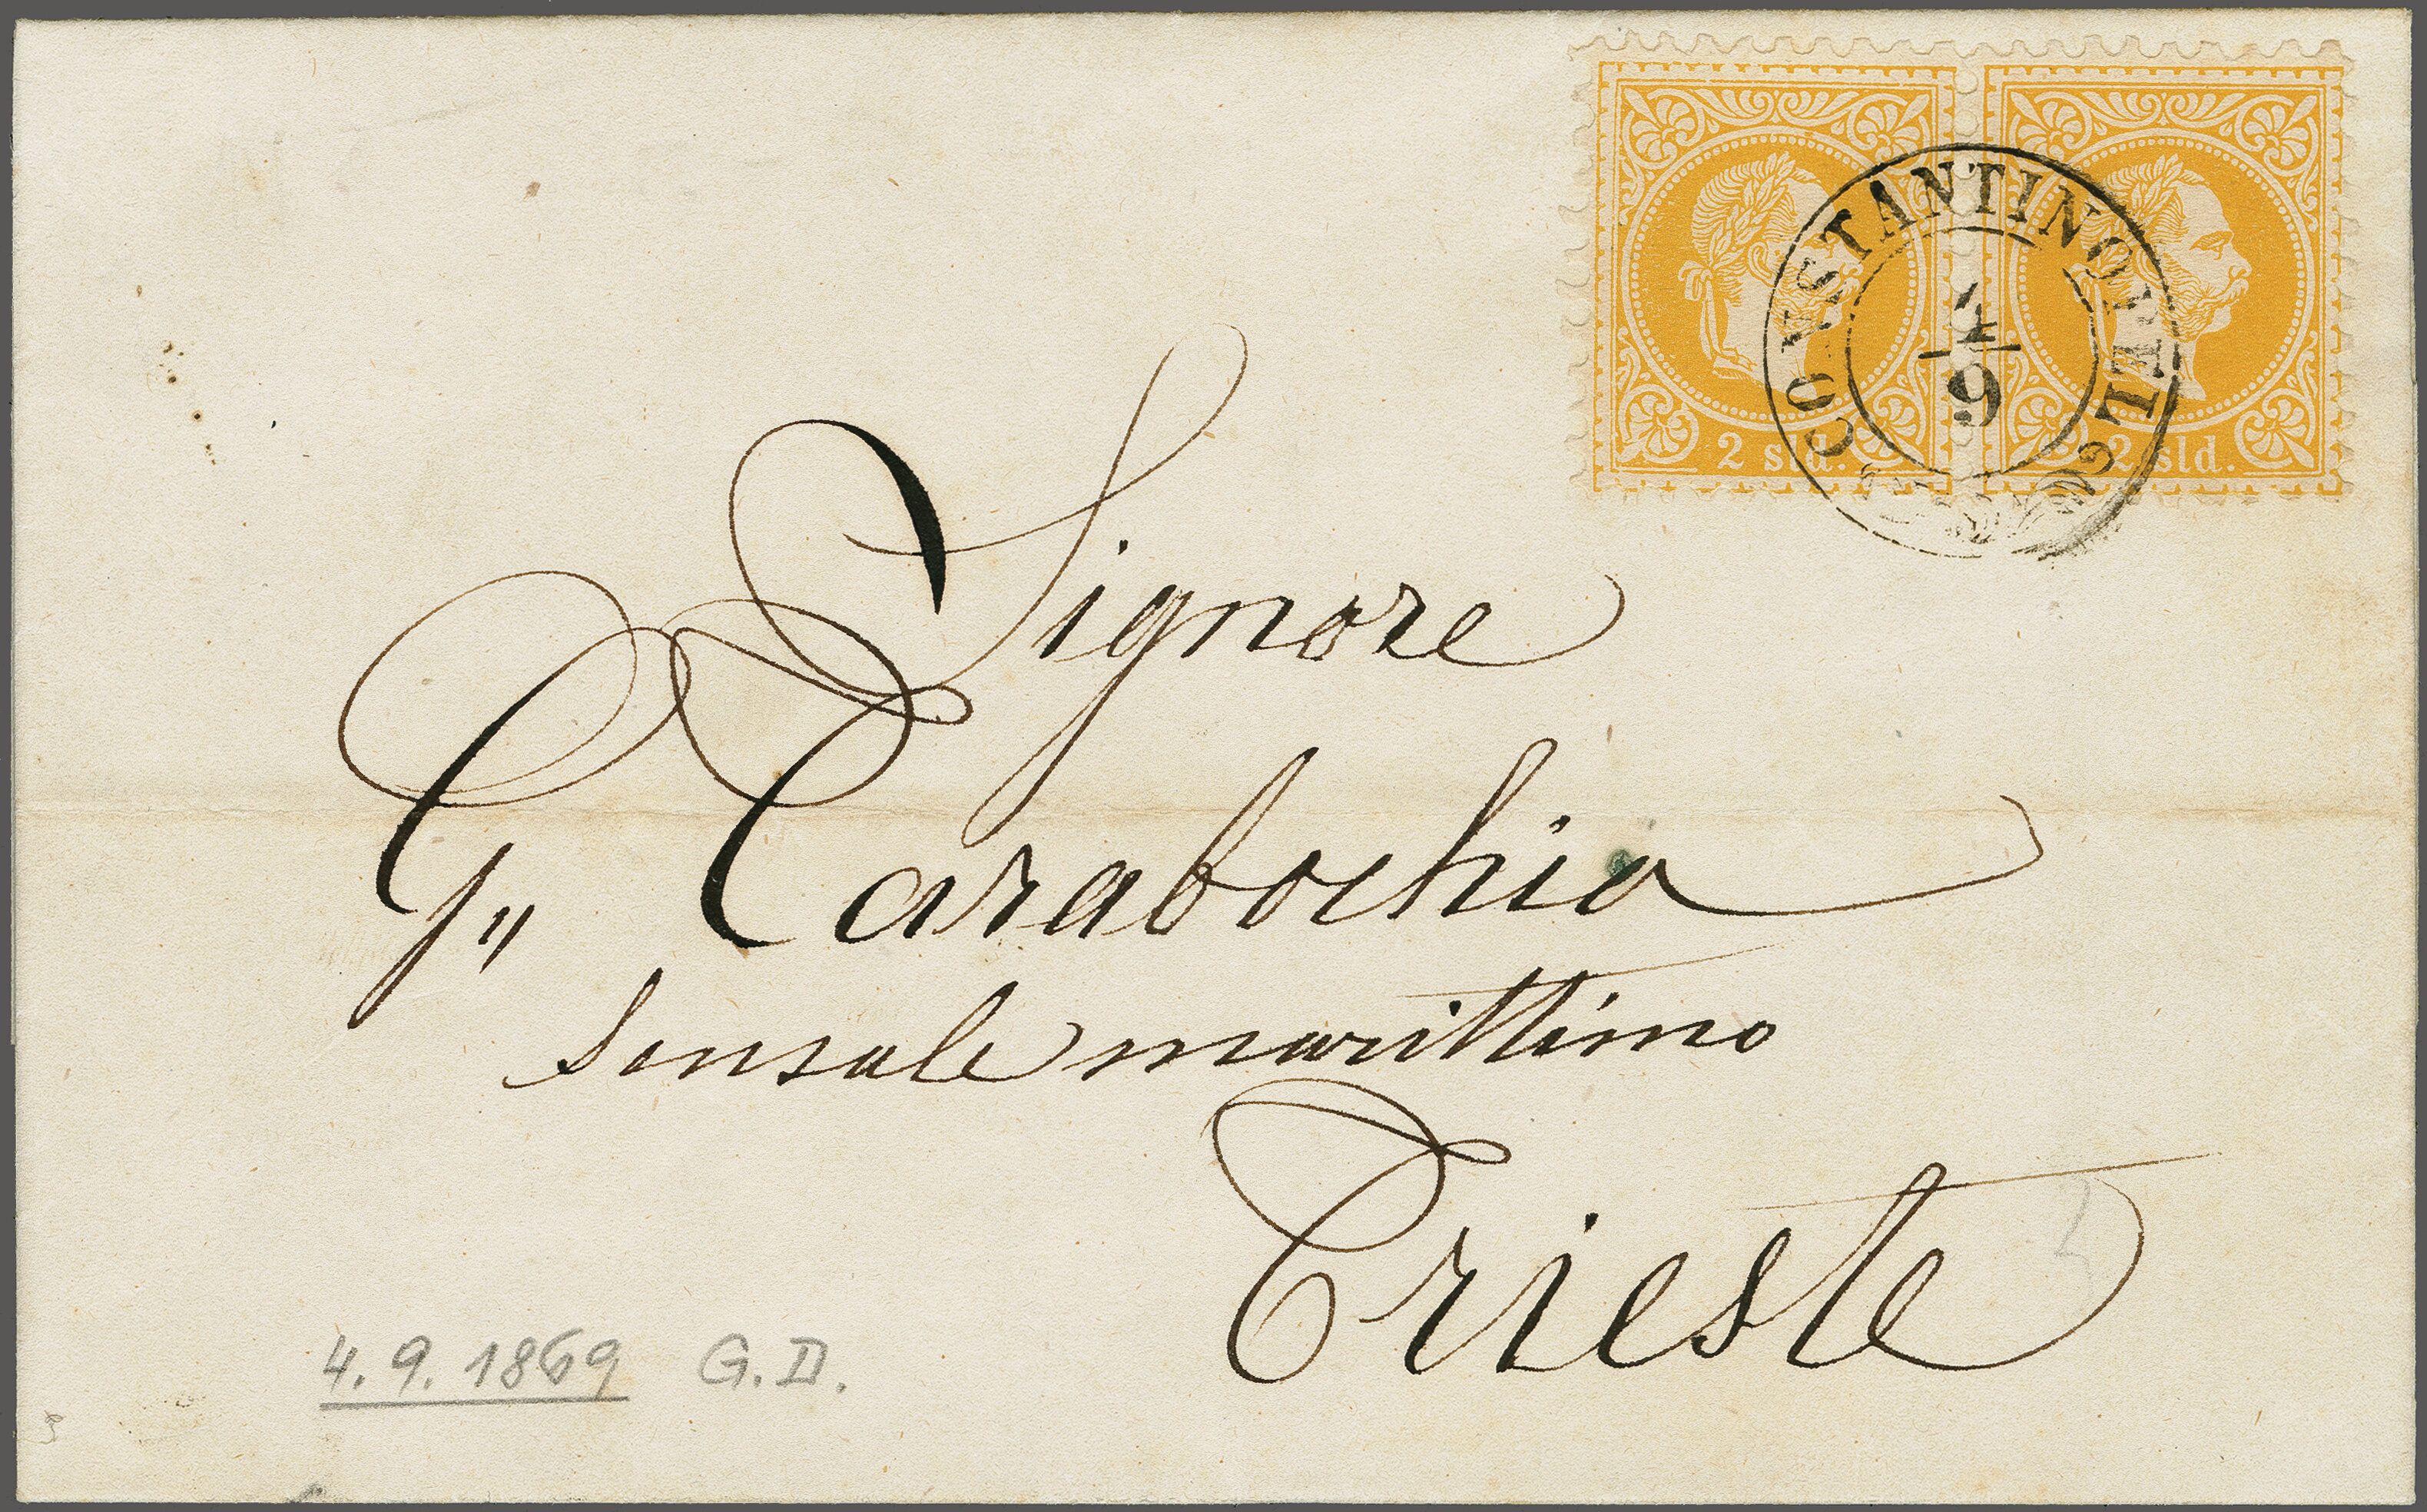 2 sld. 2 sld.
CONSTANTINOPEL
4
9
Signore
G„ Carabochia
Sensale marittimo
Trieste
4.9.1869 G.D.